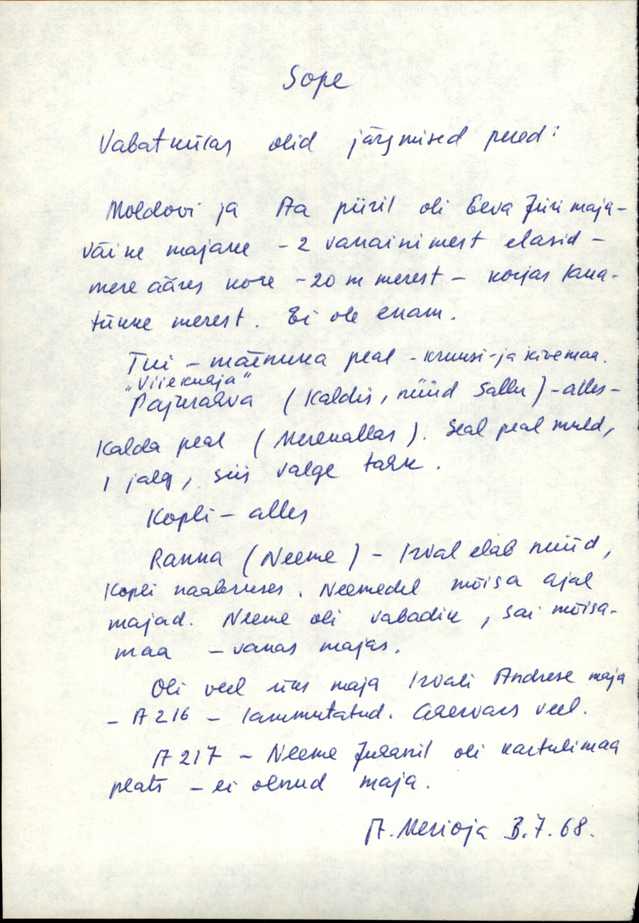 Sope
Vabatkülas olid järgmised pered:
Moldovi ja Aa piiril oli Eeva Jüri maja-
väike majake - 2 vanainimest elasid -
mere ääres kohe - 20 m merest - korjas laua-
tükke merest. Ei ole enam.
Tui - mäenuka peal - kruusi- ja kivemaa.
"Viiekulja"
Pajuraava (Kaldis, nüüd Sallu) - alles -
Kalda peal (Merekallas). Seal peal muld,
1 jalg, siis valge tahk.
Kopli - alles
Ranna (Neeme) - Irval elab nüüd,
Kopli naabruses. Neemedel mõisa ajal
majad. Neeme oli vabadik, sai mõisa-
maa - vanas majas.
Oli veel üks maja Irvali Andrese maja
- A 216 - lammutatud. veel.
A 217 - Neeme Juhanil oli kartulimaa
plats - ei olnud maja.
A. Merioja 3.7.68.